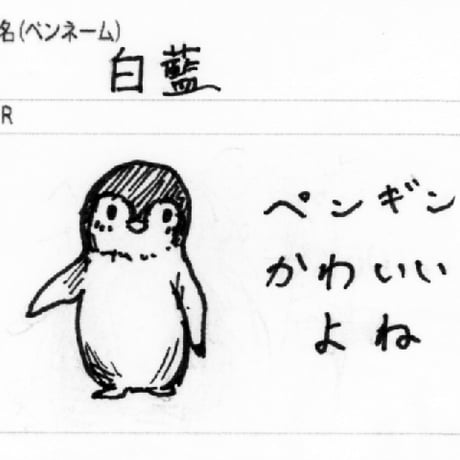 名(ペンネーム)
白藍
R
ペンギン
かわいい
よね